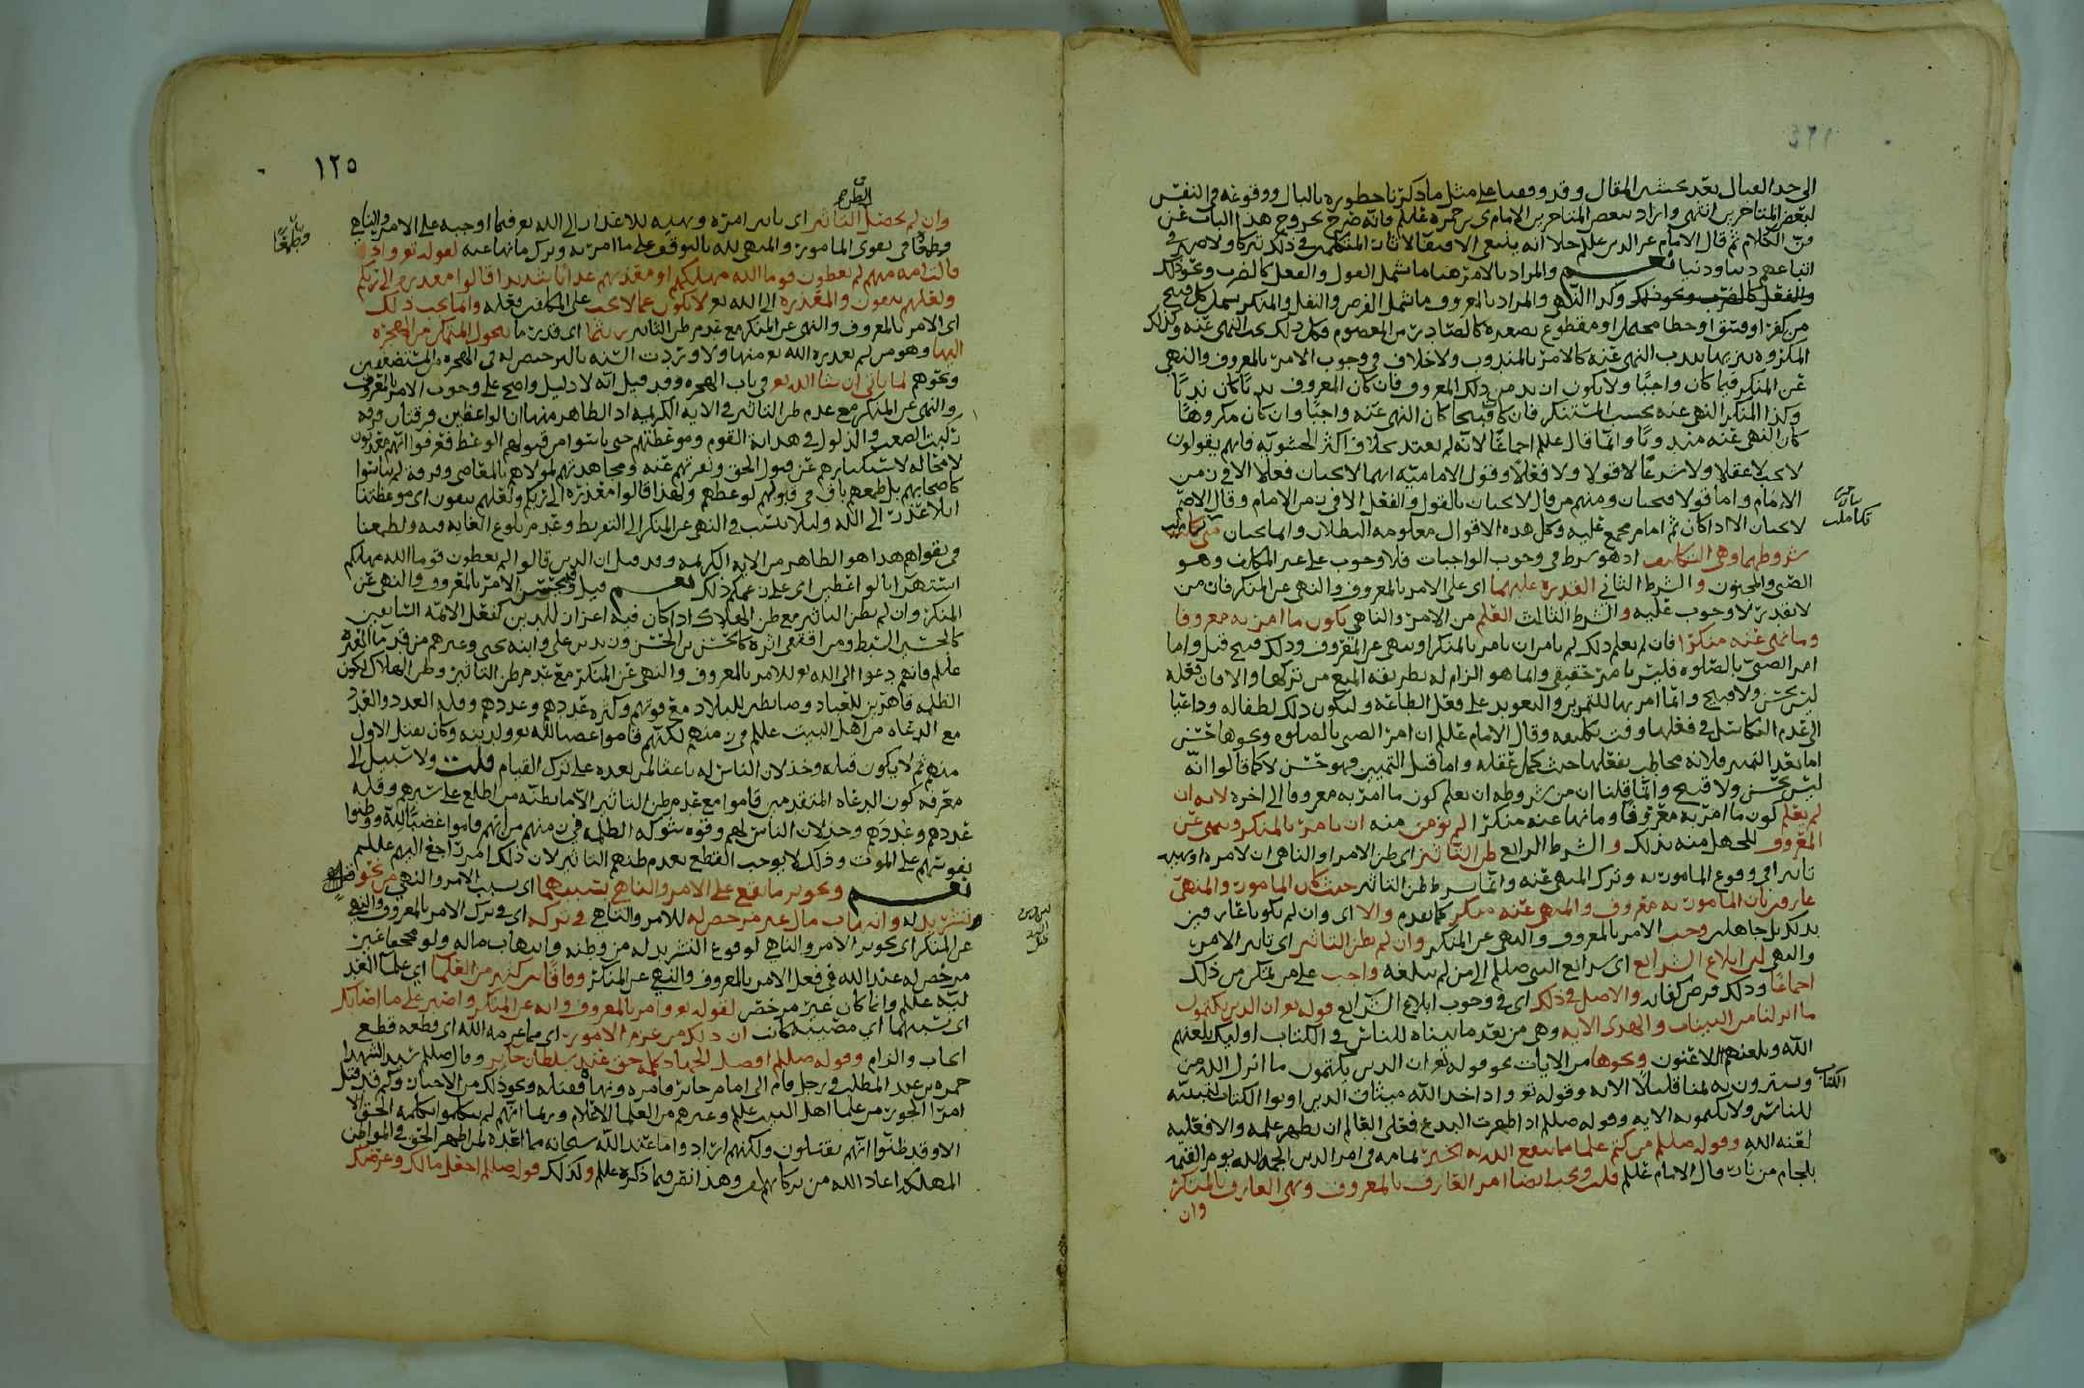 الى حد العيال بعد
لبعض المتاخرين انتهى واراد ببعض المتاخرين الامام يحيى بن حمزه عليلم فانه صرح بخروج هذا الباب عن
فن الكلام ثم قال الامام عز الدين عليلم
اتباعهم دينا ودنيا نعم والمراد بالامر هنا ما يشمل القول والفعل كالضرب ونحو ذلك
وكذا النهي والمراد بالمعروف ما يشمل الفرض والنفل والمنكر يشمل كل قبيح
من كفر او فسق او خطا محتمل او مقطوع بصغره كالصادر من المعصوم فكل ذلك يجب النهي عنه وكذلك
المكروه تنزيها يندب النهي عنه كالامر بالمندوب ولا خلاف في وجوب الامر بالمعروف والنهي
عن المنكر فيما كان واجبا ولا يكون
وكذا المنكر النهي عنه بحسب المستنكر فان كان قبيحا كان النهي عنه واجبا وان كان مكروها
كان النهي عنه مندوبا وانما قال عليلم اجماعا لانه لم يعتد بخلاف اكثر الحشويه فانهم يقولون
لا يجب لا عقلا ولا شرعا لا قولا ولا فعلا وقول الاماميه انهما لا يجبان فعلا الا في زمن
الامام واما قولا فيجبان ومنهم من قال لا يجبان بالقول والفعل الا في زمن الامام وقال الاصم
لا يجبان الا اذا كان ثم امام مجمع عليه وكل هذه الاقوال معلومه البطلان وانما يجبان متى
شروطهما وهي التكليف اذ هو شرط في وجوب الواجبات فلا وجوب على غير المكلف وهو
الصبي والمجنون والشرط الثاني القدره عليهما اي على الامر بالمعروف والنهي عن المنكر فان من
لا يقدر لا وجوب عليه والشرط الثالث العلم من الامر والناهي بكون ما امر به معروفا
وما نهى عنه منكرا فان لم يعلم ذلك لم يامر ان يامر بالمنكر او ينهى عن المعروف وذلك قبيح قيل واما
امر الصبي بالصلوه فليس بامر حقيقي وانما هو الزام له بطريقه المنع من تركها والا فان فعله
ليس بحسن ولا قبيح وانما امر بها للتمرين والتعويد على فعل الطاعه وليكون ذلك لطفا له وداعيا
الى عدم التكاسل في فعلها وقت تكليفه وقال الامام عليلم ان امر الصبي بالصلوه ونحوها حسن
اما بعد التمييز فلانه مخاطب بفعلها حيث كمل عقله واما قبل التمييز فهو حسن لا كما قالوا انه
ليس بحسن ولا قبيح وانما قلنا ان من شروطه ان يعلم كون ما امر به معروفا الى اخره لانه ان
لم يعلم كون ما امر به معروفا وما نهى عنه منكرا لم يؤمن منه ان يامر بالمنكر وينهى عن
المعروف للجهل منه بذلك والشرط الرابع ظن التاثير اي ظن الامر او الناهي ان لامره او نهيه
تاثيرا في وقوع المامور به وترك المنهي عنه وانما يشترط ظن التاثير حيث كان المامور والمنهي
عارفين بان المامور به معروف والمنهي عنه منكر كما تقدم والا اي وان لم يكونا عارفين
بذلك بل جاهلين وجب الامر بالمعروف والنهي عن المنكر وان لم يظن التاثير اي تاثير الامر
والنهي لان ابلاغ الشرائع اي شرائع النبي صللم الى من لم تبلغه واجب على من تمكن من ذلك
اجماعا وذلك فرض كفايه والاصل في ذلك اي في وجوب ابلاغ الشرائع قوله تع ان الذين يكتمون
ما انزلنا من البينات والهدى الايه وهي من بعد ما بيناه للناس في الكتاب اوليك يلعنهم
الله ويلعنهم اللاعنون ونحوها من الايات نحو قوله تع ان الذين يكتمون ما انزل الله من
الكتاب
ويشترون به ثمنا قليلا الايه وقوله تع واذ اخذ الله ميثاق الذين اوتوا الكتاب لتبيننه
للناس ولا تكتمونه الايه وقوله صللم اذا ظهرت البدع فعلى العالم ان يظهر علمه والا فعليه
لعنه الله وقوله صللم من كتم علما مما ينفع الله به الخبر تمامه في امر الدين الجمه الله يوم القيمه
بلجام من نار قال الامام عليلم قلت ويجب ايضا امر العارف بالمعروف ونهي العارف بالمنكر
وان
١٢٥
وان لم يحصل التاثير اي تاثير امره ونهيه للاعذار الى الله تع فيما اوجبه على الامر والناهي
وطمعا في تقوى المامور والمنهي لله بالوقوف على ما امر به وترك ما نهى عنه لقوله تع واذ
قالت امه منهم لم تعظون قوما الله مهلكهم او معذبهم عذابا شديدا قالوا معذره الى ربكم
ولعلهم يتقون والمعذره الى الله تع لا تكون عما لا يجب على المكلف فعله وانما يجب ذلك
اي الامر بالمعروف والنهي عن المنكر مع عدم ظن التاثير ريثما اي قدر ما يتحول المتمكن من الهجره
اليها وهو من لم يعذره الله تع منها ولا وردت السنه بالترخيص له في الهجره والمستضعفين
ونحوهم لما ياتي ان شا الله تع في باب الهجره وقد قيل انه لا دليل واضح على وجوب الامر بالمعروف
والنهي عن المنكر مع عدم ظن التاثير في الايه الكريمه اذ الظاهر منها ان الواعظين فرقتان فرقه
ركبت الصعب والذلول في هدايه القوم وموعظتهم حتى يائسوا من قبولهم الوعظ فعرفوا انهم معذبون
لا محاله لاستكبارهم عن قبول الحق ونفرتهم عنه ومجاهدتهم لمولاهم بالمعاصي وفرقه لم يياسوا
كاصحابهم بل طمعهم باق في قبولهم لوعظهم ولهذا قالوا معذره الى ربكم ولعلهم يتقون اي موعظتنا
ابلا عذر الى الله ولئلا ننسب في النهي عن المنكر الى التفريط وعدم بلوغ الغايه فيه ولطمعنا
في تقواهم هذا هو الظاهر من الايه الكريمه وقد قيل ان الذين قالوا لم تعظون قوما الله مهلكهم
استهزا بالواعظين اي على زعمكم ذلك نعم قيل ويحسن الامر بالمعروف والنهي عن
المنكر وان لم يظن التاثير مع ظن الهلاك اذا كان فيه اعزاز للدين كفعل الائمه السابقين
كالحسين السبط ومن اقتفى اثره كالحسن بن الحسن وزيد بن علي وابنه يحيى وغيرهم من قدما العتره
عليلم فانهم دعوا الى الله تع للامر بالمعروف والنهي عن المنكر مع عدم ظن التاثير وظن الهلاك لكون
الظلمه قاهرين للعباد وضابطين للبلاد مع قوتهم وكثره عددهم وعددهم وقله العدد والعدد
مع الدعاه من اهل البيت عليلم لكنهم قاموا غضبا لله تع ولدينه وكان يقتل الاول
منهم ثم لا يكون قتله وخذلان الناس له باعثا لمن بعده على ترك القيام قلت ولا سبيل الى
معرفه كون الدعاه المتقدمين قاموا مع عدم ظن التاثير الا مباطنه من اطلع على سيرهم وقله
عددهم وعددهم وخذلان الناس لهم وقوه شوكه الظلمه في زمنهم من انهم قاموا غضبا لله ووطنوا
نفوسهم على الموت وذلك لا يوجب القطع بعدم ظنهم التاثير لان ذلك امر راجع اليهم عليلم
نعم ويجوز ما يقع على الامر والناهي بسببهما اي بسبب الامر والنهي من نحو
وتشريد له وانهاب مال غير مرخص له للامر والناهي في تركه اي في ترك الامر بالمعروف والنهي
عن المنكر اي يجوز الامر والناهي لوقوع التشريد له من وطنه وانهاب ماله ولو مجحفا غير
مرخص له عند الله في فعل الامر بالمعروف والنهي عن المنكر وفاقا لكثير من العلما اي علما العد
ليه عليلم وانما كان غير مرخص لقوله تع وامر بالمعروف وانه عن المنكر واصبر على ما اصابك
اي بسببهما اي مصيبه كانت ان ذلك من عزم الامور اي مما عزمه الله اي قطعه قطع
ايجاب والزام وقوله صللم افضل الجهاد كلمه حق عند سلطان جاير وقال صللم سيد الشهدا
حمزه بن عبد المطلب ورجل قام الى امام جائر فامره ونهاه فقتله ونحو ذلك من الاخبار وكم قد قتل
امرا الجور من علما اهل البيت عليلم وغيرهم من العلما الاعلام وربما انهم لم يتكلموا بكلمه الحق الا
الا وقد ظنوا انهم يقتلون ولكنهم ارادوا ما عند الله سبحانه مما اعده لمن اظهر الحق في المواطن
المهلكه اعاد الله من بركاتهم وهذا نقر فيما ذكره عليلم وكذلك قوله صللم اجعل مالك وعرضك